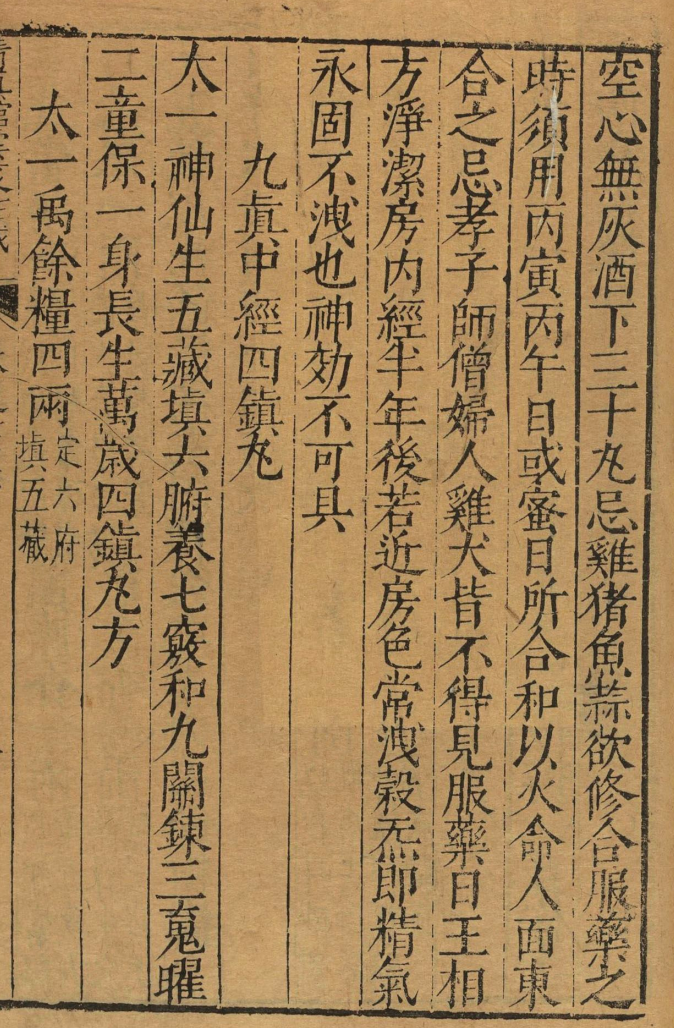 空心無灰酒下三十丸忌雞猪魚蒜欲修合服藥之
時須用丙寅丙午日或蜜日所合和以火命人面東
合之忌孝子師僧婦人雞犬皆不得見服藥日王相
方淨潔房内經半年後若近房色常洩穀炁即精氣
永固不洩也神効不可具
九真中經四鎮丸
太一神仙生五藏填六腑養七竅和九關鍊三䰟曜
二童保一身長生萬歳四鎮丸方
太一禹餘糧四兩定六府
填五藏